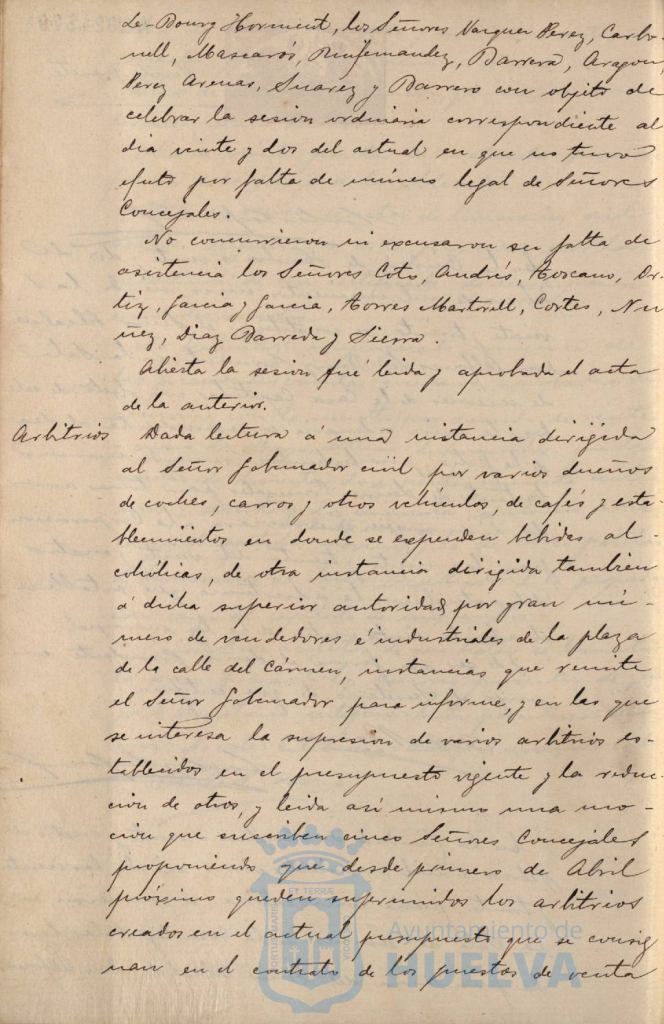 Le-Bourg Horment, los Señores Vazquez Perez, Carbo-
nell, Mascarós, Ruifernandez, Barrera, Aragon,
Perez Arenas, Suarez y Barrero con objeto de
celebrar la sesion ordinaria correspondiente al
dia veinte y dos del actual en que no tuvo
efecto por falta de número legal de Señores
Concejales.
No concurrieron ni excusaron su falta de
asistencia los Señores Coto, Andrés, Toscano, Or-
tiz, Garcia y Garcia, Torres Martorell, Cortes, Nu-
ñez, Diaz Barreda y Sierra.
Abierta la sesion fué leida y aprobada el acta
de la anterior.
Arbitrios Dada lectura á una instancia dirigida
al Señor Gobernador civil por varios dueños
de coches, carros y otros vehículos, de cafés y esta-
blecimientos en donde se expenden bebidas al-
cohólicas, de otra instancia dirigida tambien
á dicha superior autoridad por gran nú-
mero de vendedores é industriales de la plaza
de la calle del Cármen, instancias que remite
el Señor Gobernador para informe, y en las que
se interesa la supresion de varios arbitrios es-
tablecidos en el presupuesto vigente y la reduc-
cion de otros, y leida asi mismo una mo-
cion que suscriben cinco Señores Concejales
proponiendo que desde primero de Abril
próximo queden suprimidos los arbitrios
creados en el actual presupuesto que se consig
nan en el contrato de los puestos de venta
PORTUS MARIS ET TERRÆ CUSTODIA
Ayuntamiento de
HUELVA